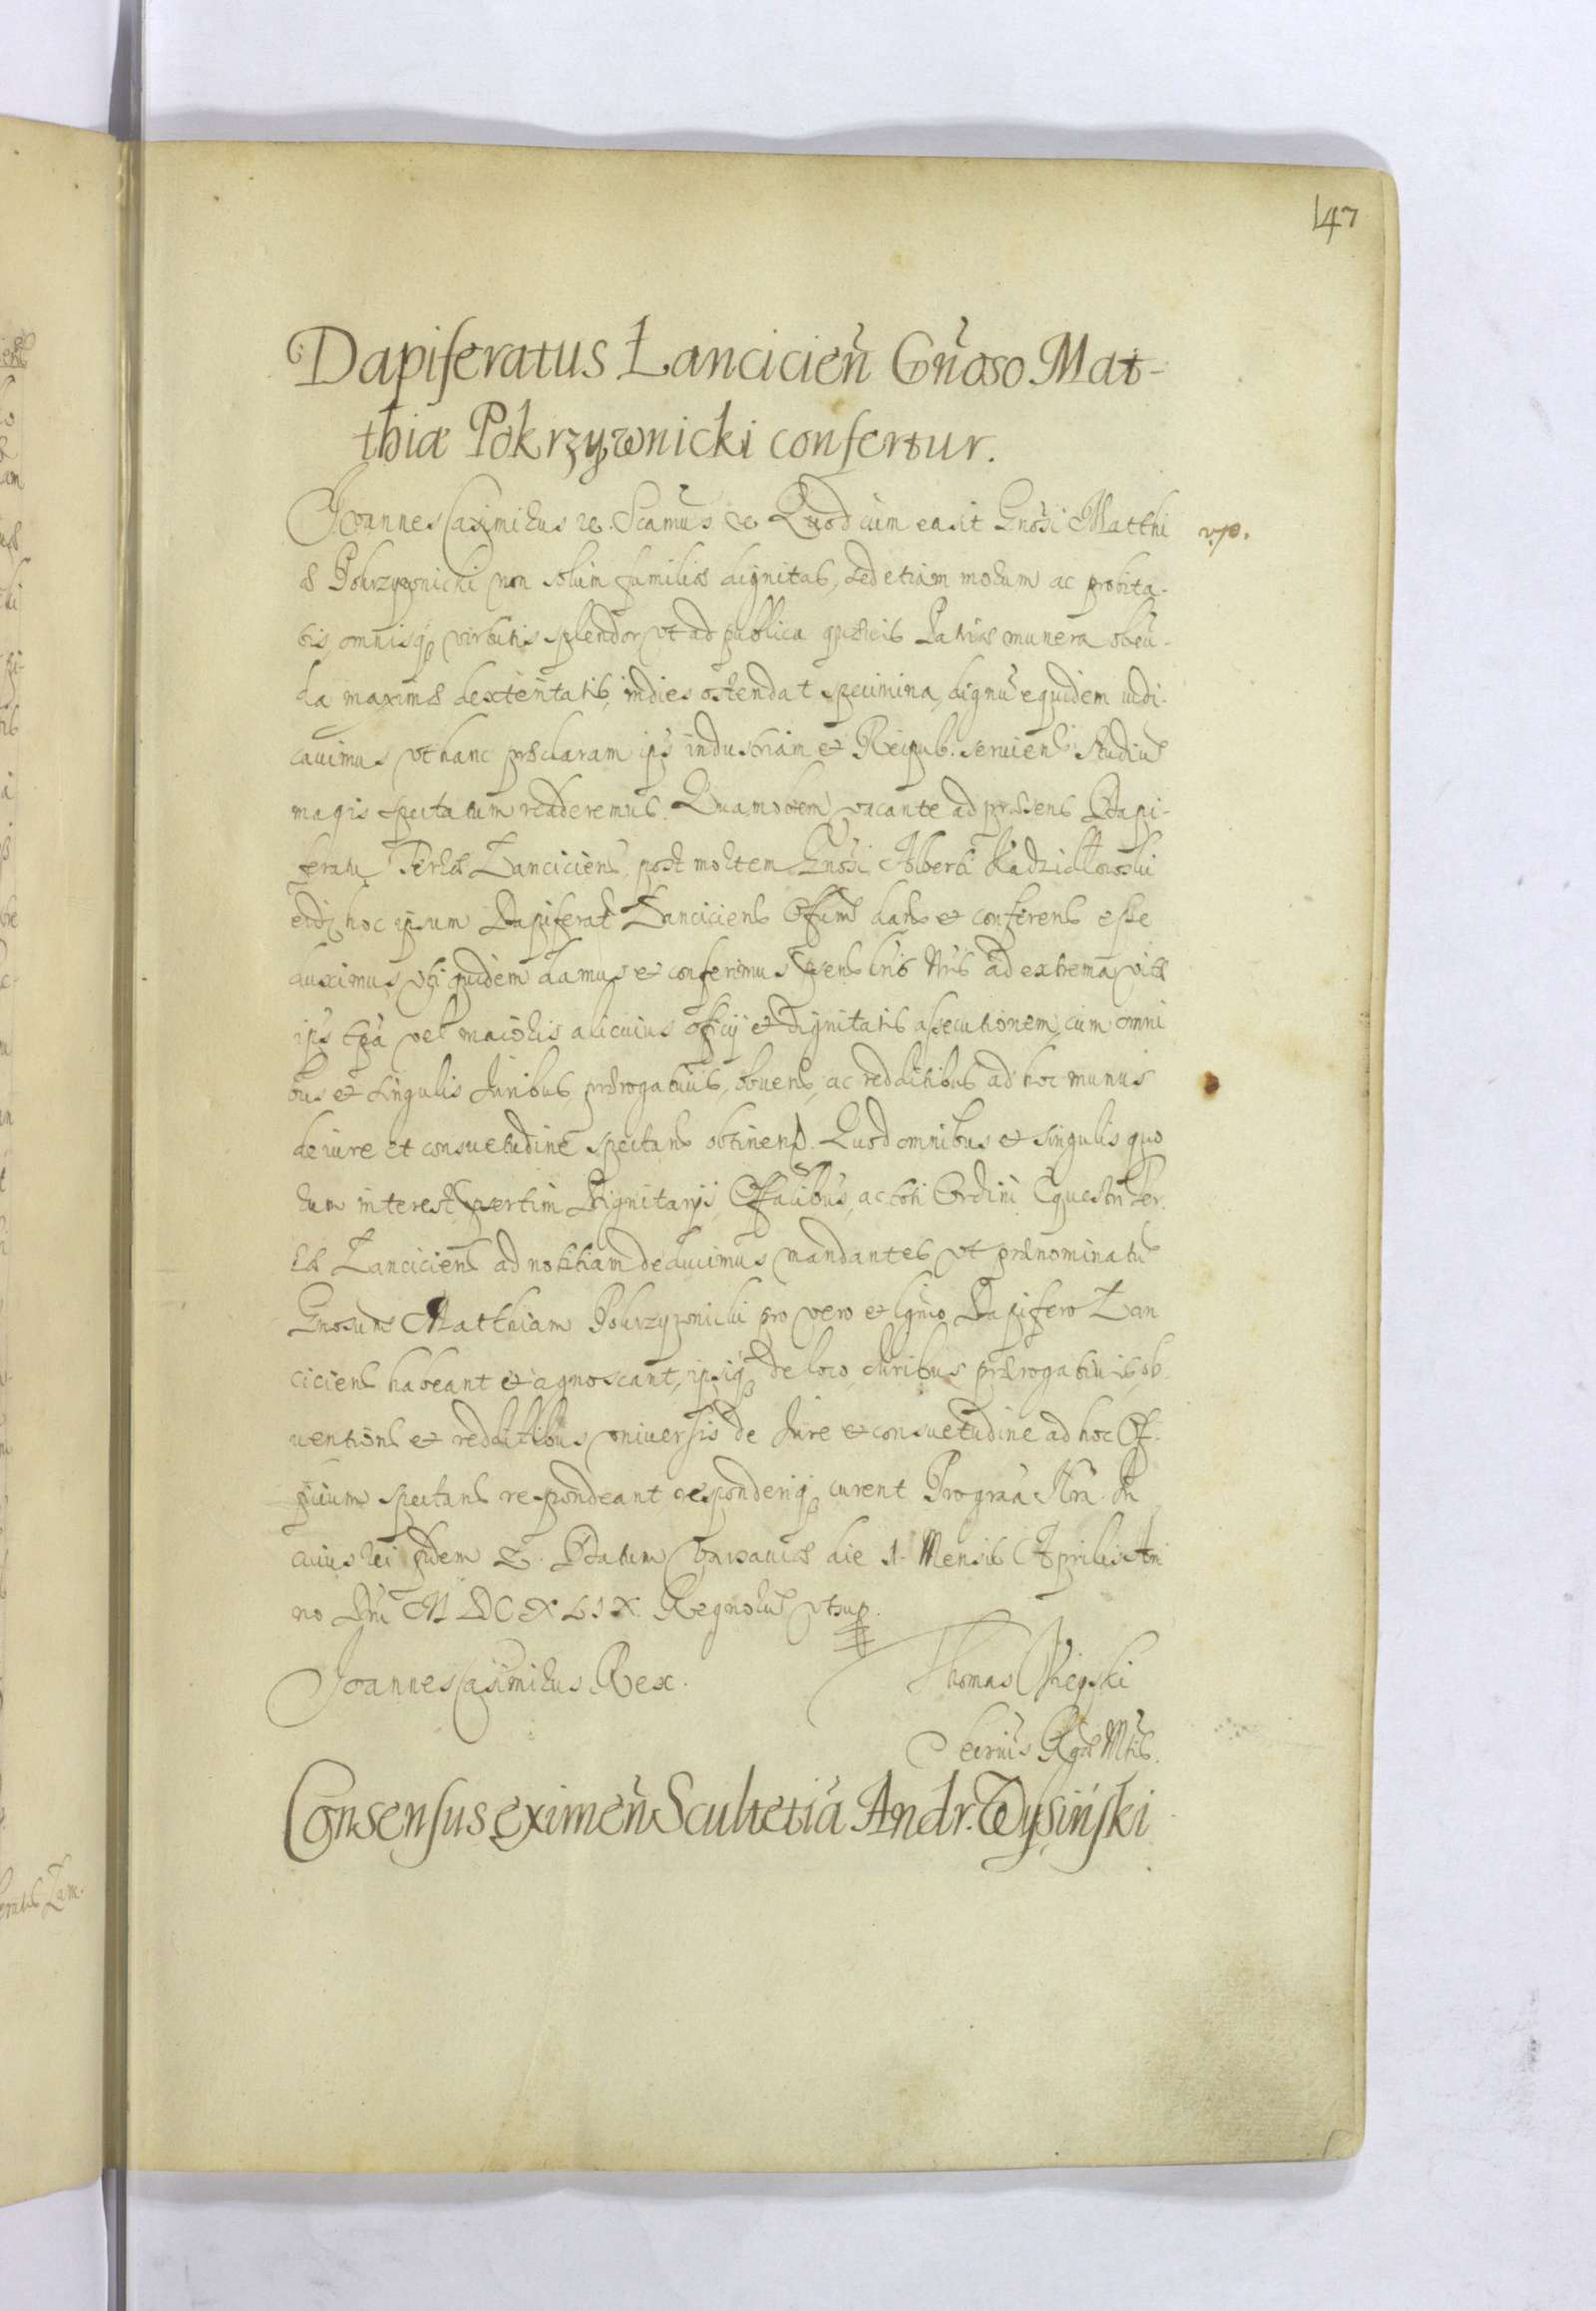 147
Dapiferatus Lancicień Gn̄oso Mat-
thiæ Pokrzywnicki confertur.
Joannes Casimirus &c. Scamūs &c Quod cùm ea sit Gnōsi Matthi
æ Pokrzywnicki non solùm familiæ dignitas, sed etiam morum ac probita-
tis, omnisq; virtutis splendor, vt ad publica quævis Patriæ munera obeū-
da maximæ dexteritatis, indies ostendat specimina, dignū equidem iudi-
v.p.
cauimus vt hanc præclaram ips industriam et Reipub: seruien studiū
magis spectatum redderemus. Quamobrem vacante ad præsens Dapi-
feratu Terræ Lanciciens, post mortem Gnōsi Alberti Kadzidłowski
eidē hoc ipsum Dapiferat Lanciciens Offum dand et conferend esse
duximus, vti quidem damus et conferimus psent lris Nris ad extrema vitæ
ips tpa vel maioris alicuius officij et dignitatis assecutionem, cum omni
bus et singulis Juribus, prærogatiuis, obuent, ac redditibus ad hoc munus
de iure et consuetudine spectan obtinend. Quod omnibus et singulis quo
rum interest, psertim Dignitarijs, Offalibus, ac toti Ordini Equestri Ter-
ræ Lanciciens ad notitiam deducimus mandantes vt prænominatū
Gnosum Matthiam Pokrzywnicki pro vero et lgmo Dapifero Lan
ciciens habeant et agnoscant, ipsiq; de loco, Juribus, prærogatiuis, ob-
uentions et redditibus vniuersis de Jure et consuetudine ad hoc Of-
ficium spectan respondeant responderiq; curent Pro gratia Nra. In
cuius rei fidem &. Datum Varsauiæ die 1. Mensis Aprilis An
no Dni MDCXLIX. Regnorū vt sup.
Joannes Casimirus Rex.
Thomas
Secrius Rgæ Mtis.
Consensus eximen̄ Scultetiā Andr. Wysiński